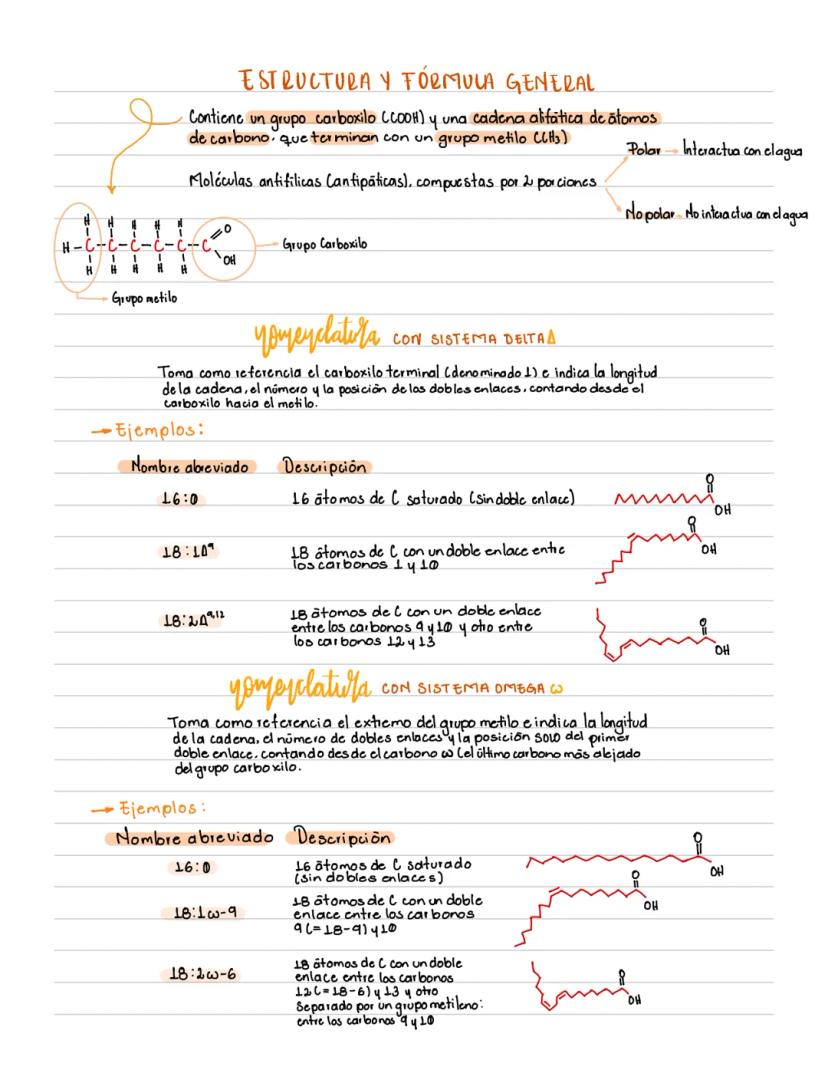 ESTRUCTURA Y FÓRMULA GENERAL
Contiene un grupo carboxilo (COOH) y una cadena alifática de átomos
de carbono, que terminan con un grupo metilo (CH₃)
Polar → Interactua con el agua
Moléculas antifílicas (antipáticas), compuestas por 2 porciones
No polar - No interactua con el agua
H H H H H
H-C-C-C-C-C-C O
OH
H H H H H
Grupo Carboxilo
Grupo metilo
nomenclatura CON SISTEMA DELTA Δ
Toma como referencia el carboxilo terminal (denominado 1) e indica la longitud
de la cadena, el número y la posición de los dobles enlaces, contando desde el
carboxilo hacia el metilo.
→ Ejemplos:
Nombre abreviado Descripción
16:0 16 átomos de C saturado (sin doble enlace)
O
OH
18:1Δ⁹ 18 átomos de C con un doble enlace entre
los carbonos 1 y 10
O
OH
18:2Δ⁹,¹² 18 átomos de C con un doble enlace
entre los carbonos 9 y 10 y otro entre
los carbonos 12 y 13
O
OH
nomenclatura CON SISTEMA OMEGA ω
Toma como referencia el extremo del grupo metilo e indica la longitud
de la cadena, el número de dobles enlaces y la posición SOLO del primer
doble enlace, contando desde el carbono ω (el último carbono más alejado
del grupo carboxilo.
→ Ejemplos:
Nombre abreviado Descripción
16:0 16 átomos de C saturado
(sin dobles enlaces)
O
OH
18:1ω-9 18 átomos de C con un doble
enlace entre los carbonos
9 (=18-9) y 10
O
OH
18:2ω-6 18 átomos de C con un doble
enlace entre los carbonos
12 (=18-6) y 13 y otro
Separado por un grupo metileno:
entre los carbonos 9 y 10
O
OH